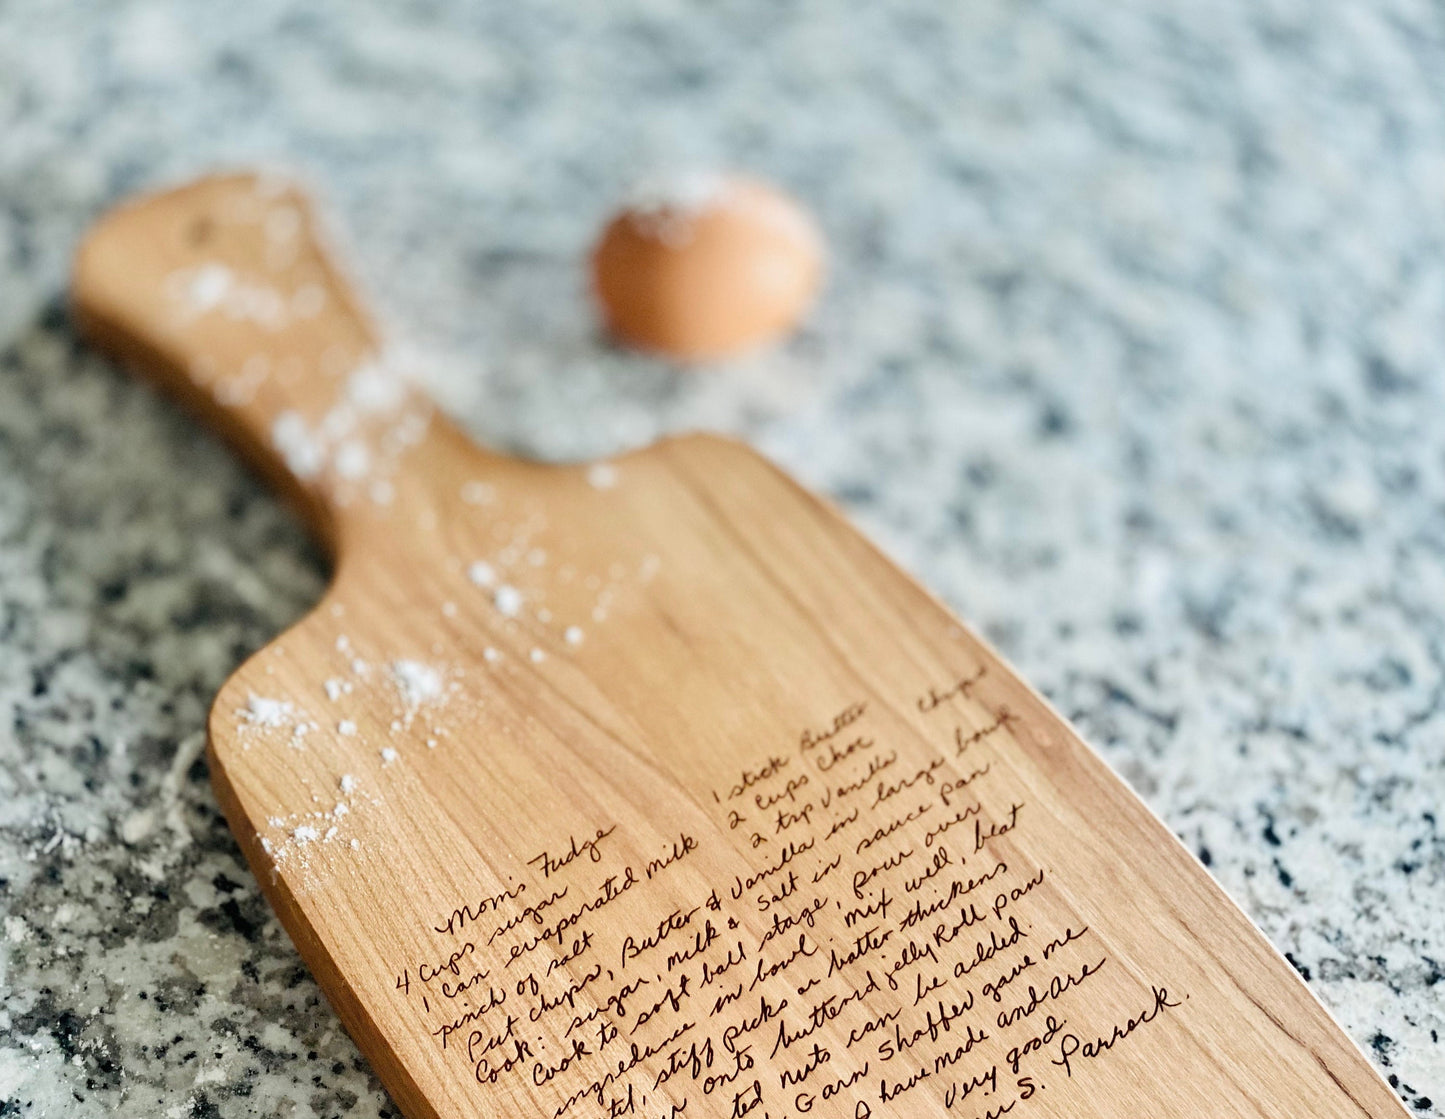 Mom's Fudge
4 cups sugar
1 can evaporated milk
pinch of salt
1 stick Butter
2 cups choc chips
2 tsp vanilla
Put chips, Butter & Vanilla in large bowl
Cook: sugar, milk & salt in sauce pan.
Cook to soft ball stage, pour over
ingrediance in bowl. mix well, beat
stiff picks or batter thickens
onto buttered jelly Roll pan.
nuts can be added.
Garn Shaffer gave me
I have made and are
very good.
S. Parrock.